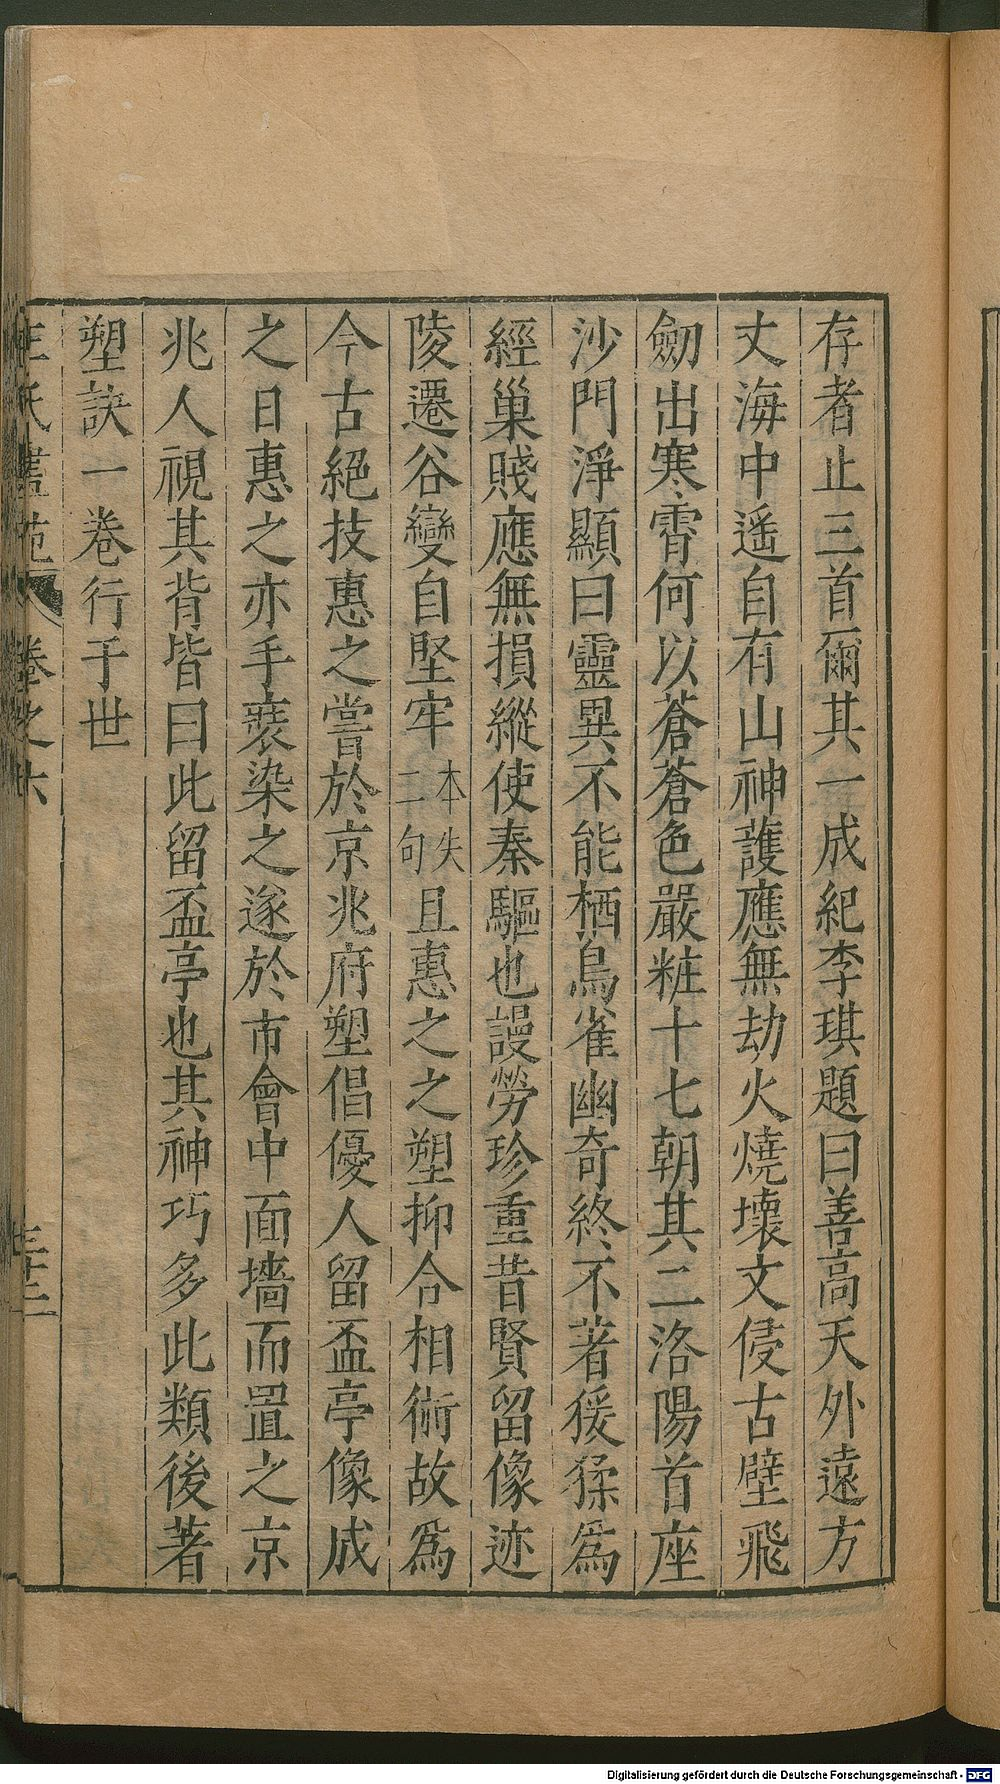 存者止三首爾其一成紀李琪題曰善高天外遠方
丈海中遥自有山神護應無劫火燒壞文侵古壁飛
劒出寒霄何以蒼蒼色嚴粧十七朝其二洛陽首座
沙門淨顯曰靈異不能栖鳥雀幽奇終不著猨猱爲
經巢賤應無損縱使秦驅也謾勞珍重昔賢留像迹
陵遷谷變自堅牢本失二句且惠之之塑抑合相術故爲
今古絕技惠之嘗於京兆府塑倡優人留盃亭像成
之日惠之亦手裛染之遂於市會中面墻而置之京
兆人視其背皆曰此留盃亭也其神巧多此類後著
塑訣一卷行于世
王氏畫苑 卷之六 三十二
Digitalisierung gefördert durch die Deutsche Forschungsgemeinschaft - DFG